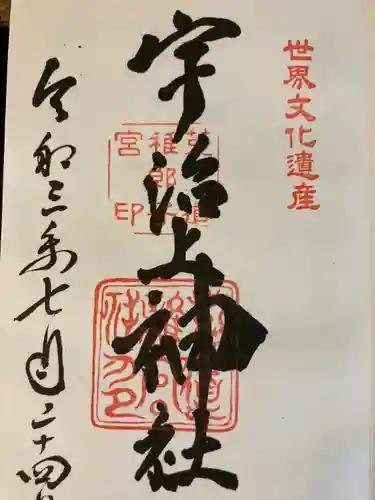 世界文化遺産
宇治上神社
令和三年七月二十四日